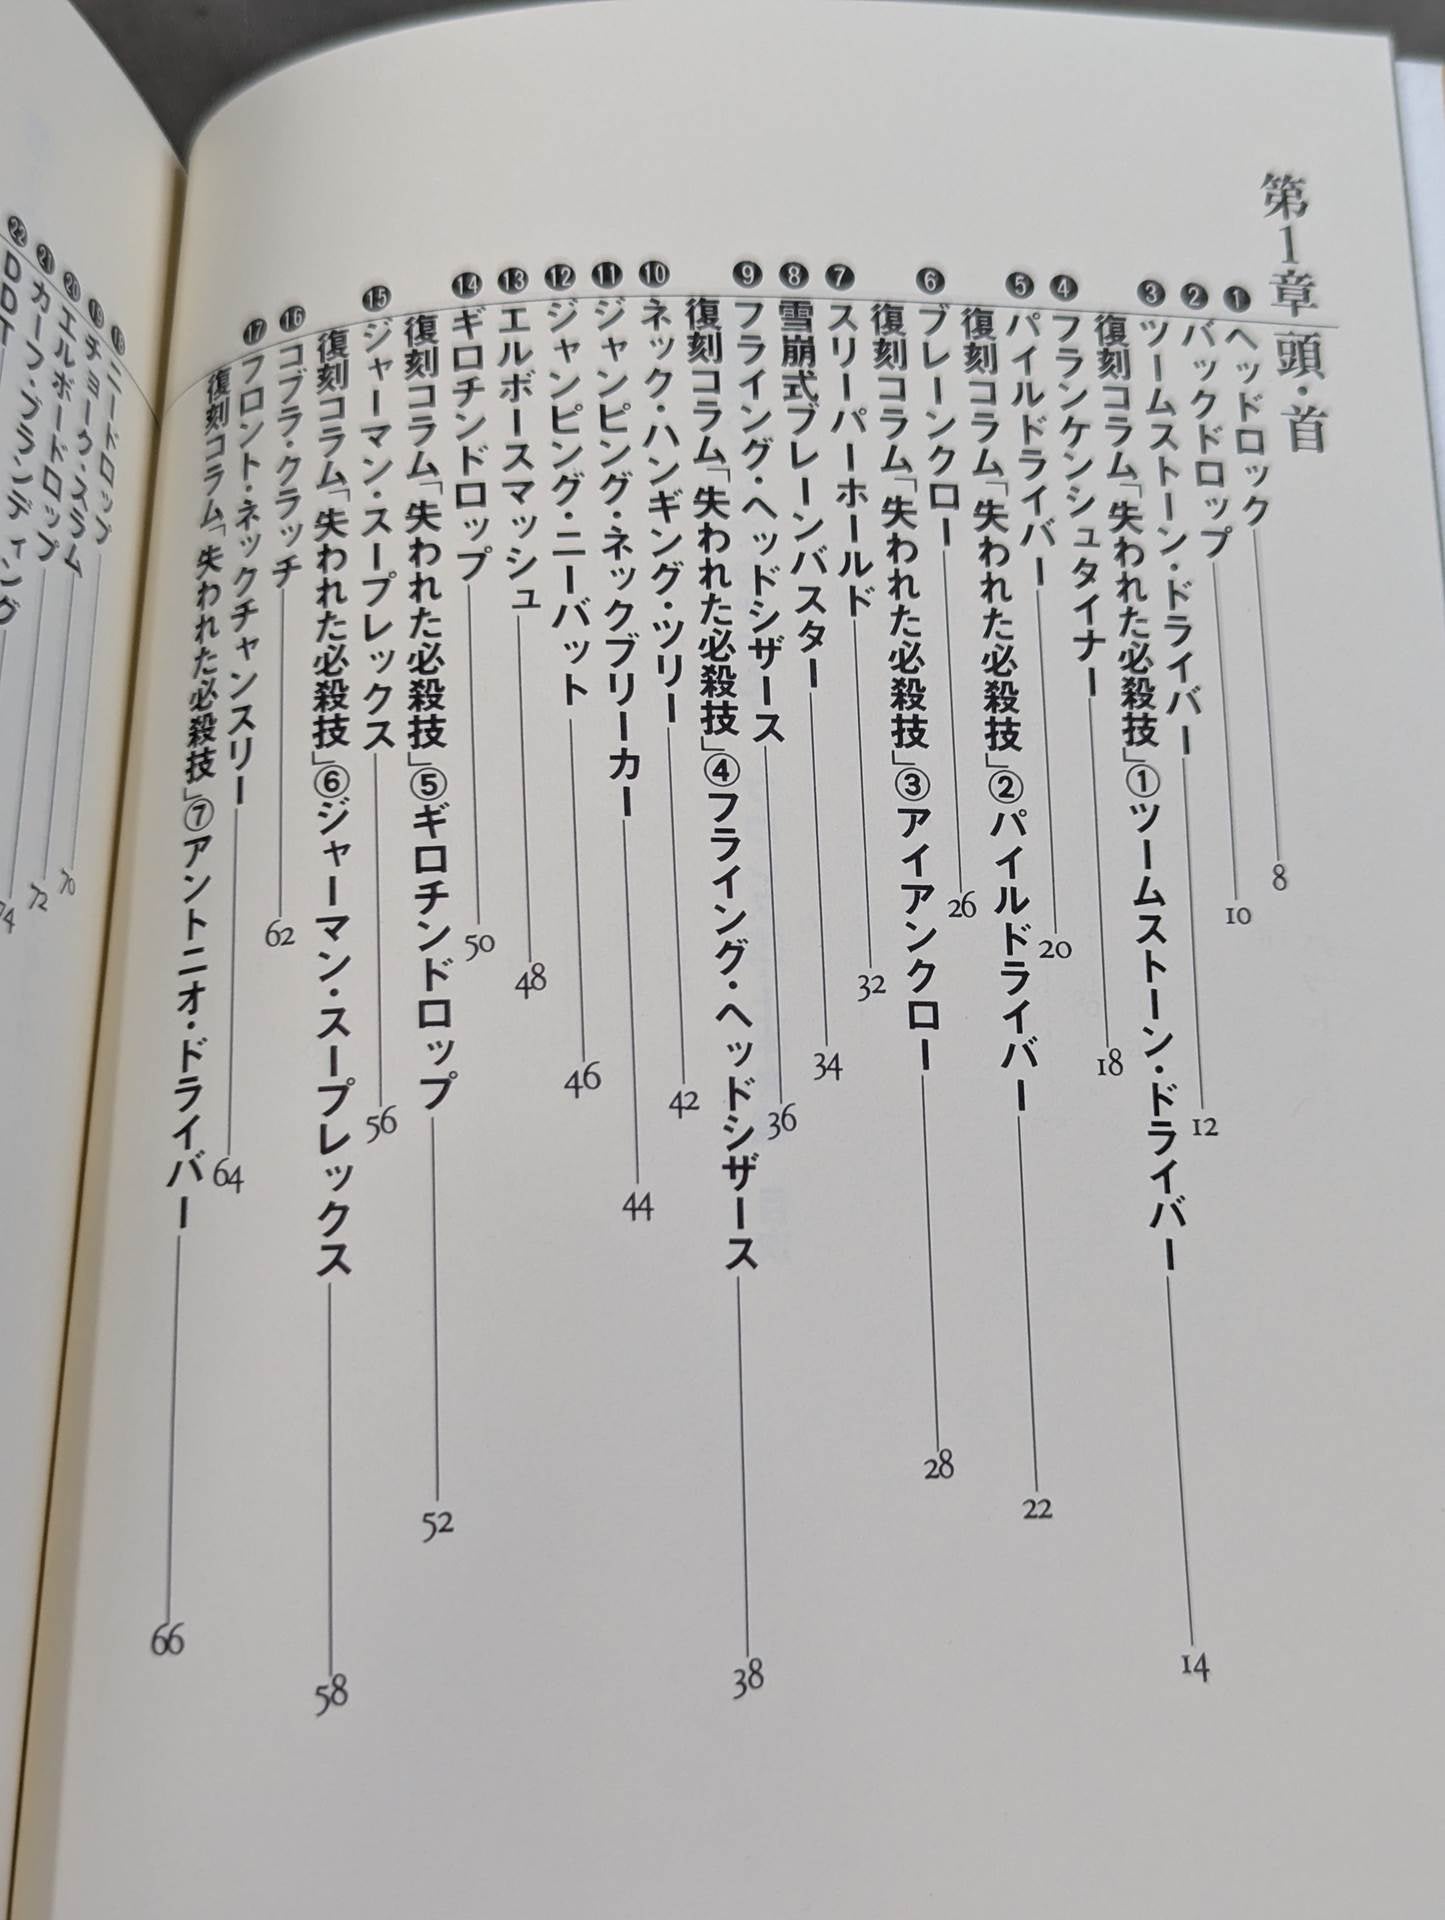 第1章 頭・首
❶ヘッドロック 8
❷バックドロップ 10
❸ツームストーン・ドライバー 12
復刻コラム「失われた必殺技」①ツームストーン・ドライバー 14
❹フランケンシュタイナー 18
❺パイルドライバー 20
復刻コラム「失われた必殺技」②パイルドライバー 22
❻ブレーンクロー 26
復刻コラム「失われた必殺技」③アイアンクロー 28
❼スリーパーホールド 32
❽雪崩式ブレーンバスター 34
❾フライング・ヘッドシザース 36
復刻コラム「失われた必殺技」④フライング・ヘッドシザース 38
❿ネック・ハンギング・ツリー 42
⓫ジャンピング・ネックブリーカー 44
⓬ジャンピング・ニーバット 46
⓭エルボースマッシュ 48
⓮ギロチンドロップ 50
復刻コラム「失われた必殺技」⑤ギロチンドロップ 52
⓯ジャーマン・スープレックス 56
復刻コラム「失われた必殺技」⑥ジャーマン・スープレックス 58
⓰コブラ・クラッチ 62
⓱フロント・ネックチャンスリー 64
復刻コラム「失われた必殺技」⑦アントニオ・ドライバー 66
⓲ニードロップ
⓳チョーク・スラム
⓴エルボードロップ 70
㉑カーフ・ブランディング 72
㉒DDT 74